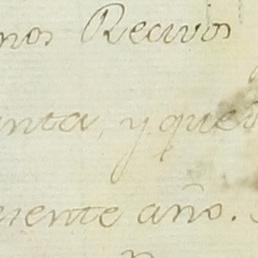 nos Recivos
enta, y que
esente año.